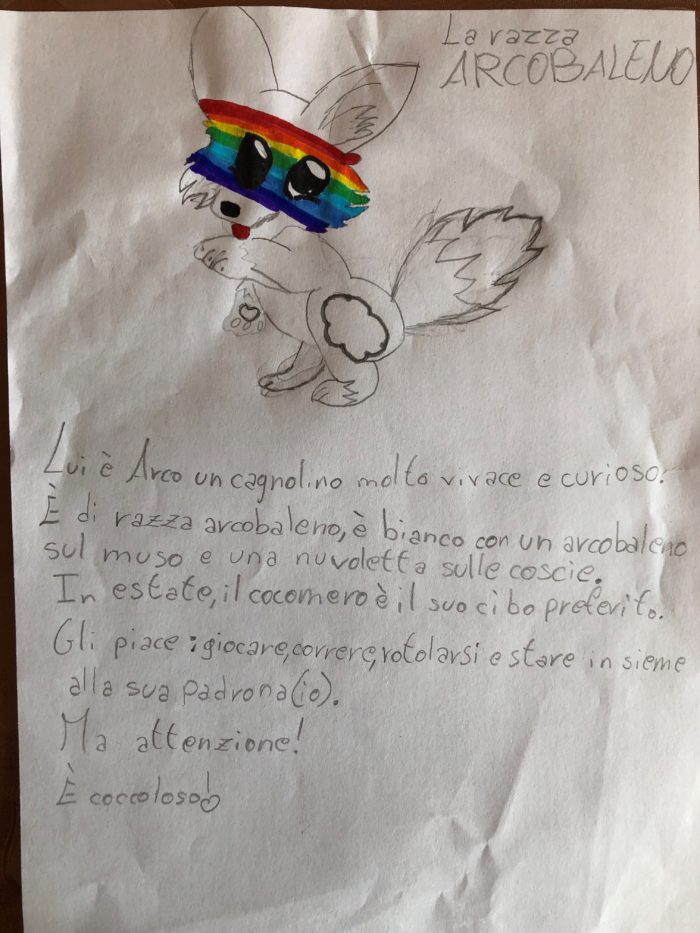 La razza
ARCOBALENO
Lui è Arco un cagnolino molto vivace e curioso.
È di razza arcobaleno, è bianco con un arcobaleno
sul muso e una nuvoletta sulle coscie.
In estate, il cocomero è il suo cibo preferito.
Gli piace : giocare, correre, rotolarsi e stare in sieme
alla sua padrona (io).
Ma attenzione!
È coccoloso!